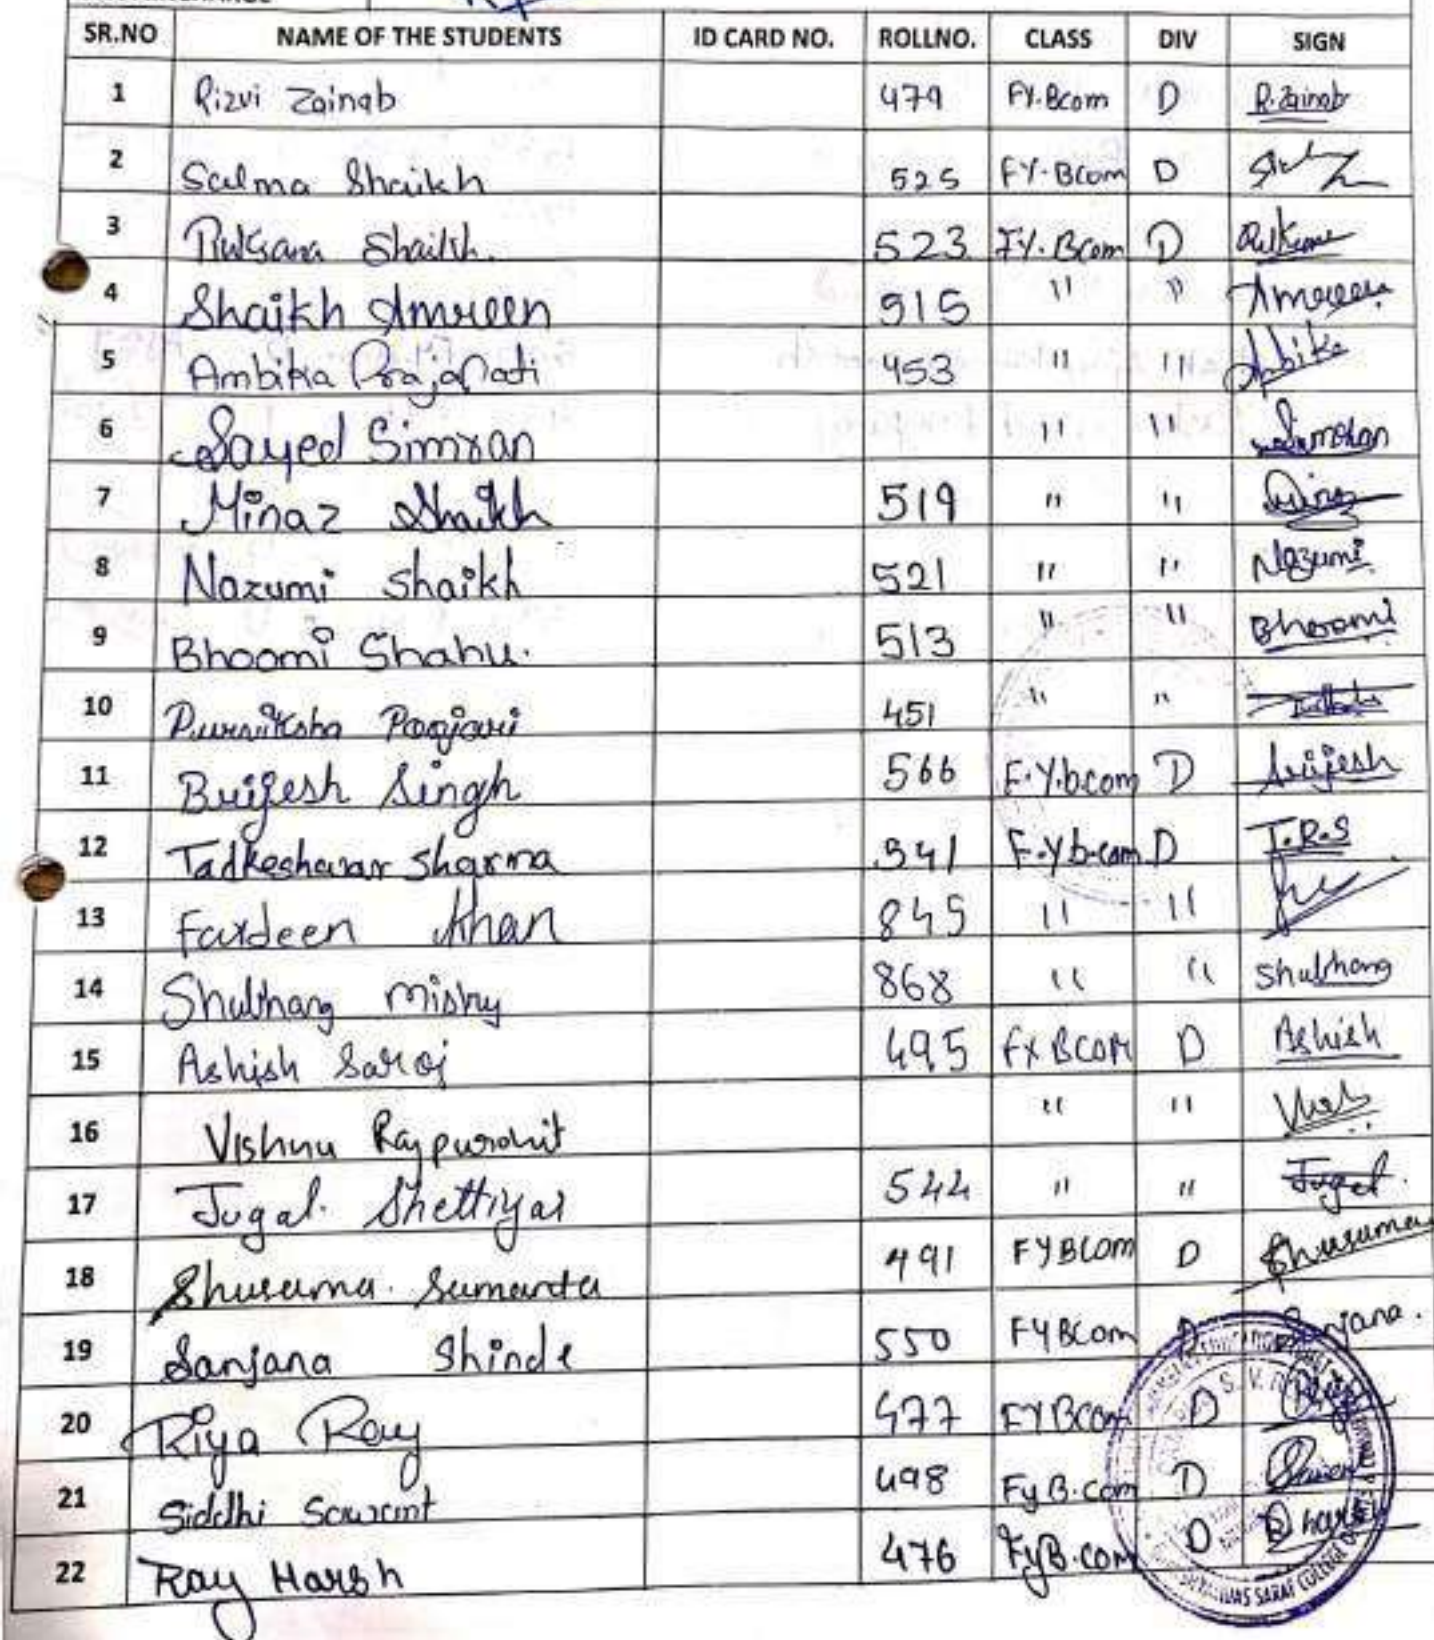 SR.NO NAME OF THE STUDENTS ID CARD NO. ROLLNO. CLASS DIV SIGN
1 Rizvi Zainab 479 FY.Bcom D R.Zainab
2 Salma Shaikh 525 FY-BCom D
3 Ruksana Shaikh. 523 FY.Bcom D
4 Shaikh Amreen 515 " " Amreen
5 Ambika Prajapati 453 " " Ambika
6 Sayed Simran " " Simran
7 Minaz Shaikh 519 " "
8 Nazumi Shaikh 521 " " Nazumi
9 Bhoomi Shahu. 513 " " Bhoomi
10 451 " "
11 Brijesh Singh 566 F.Y.b.com D Brijesh
12 Tadkeshwar Sharma 541 F.Yb.com D T.R.S
13 Fardeen Khan 845 " "
14 868 " "
15 Ashish Saroj 495 FY BCOM D Ashish
16 Vishnu Rajpurohit " "
17 Jugal. Shettiyar 544 " " Jugal.
18 491 FYBCOM D
19 Sanjana Shinde 550 FYBCom D Sanjana.
20 Riya Ray 477 FYBCom D
21 Siddhi Sawant 498 FyB.com D
22 Ray Harsh 476 FyB.com D
SARAF COLLEGE